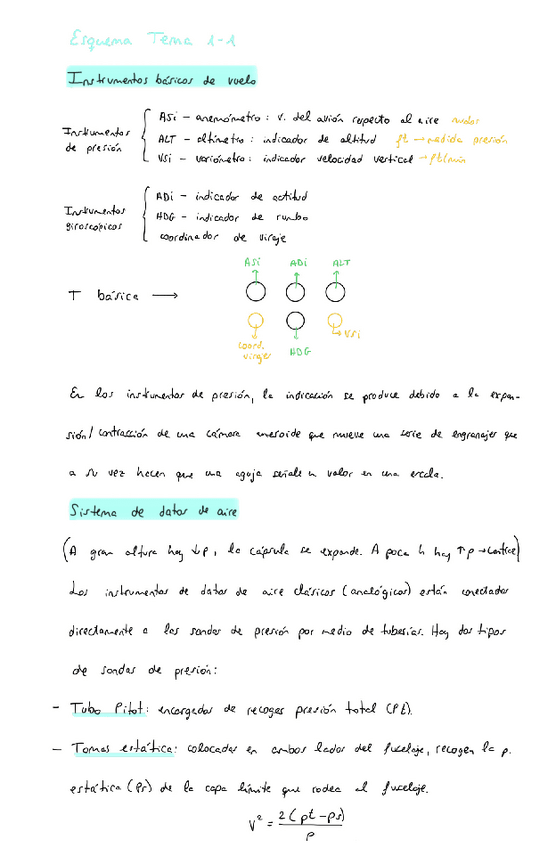 Esquema Tema 1-1
Instrumentos básicos de vuelo
Instrumentos de presión
ASi - anemómetro: v. del avión respecto al aire nudos
ALT - altímetro: indicador de altitud ft → medida presión
VSi - variómetro: indicador velocidad vertical → ft/min
Instrumentos giroscópicos
ADi - indicador de actitud
HDG - indicador de rumbo
coordinador de viraje
ASi ADi ALT
T básica →
coord. virajes
HDG
VSi
En los instrumentos de presión, la indicación se produce debido a la expan-
sión/contracción de una cámara aneroide que mueve una serie de engranajes que
a su vez hacen que una aguja señale un valor en una escala.
Sistema de datos de aire
(A gran altura hay ↓p, la cápsula se expande. A poca h hay ↑p → contrae)
Los instrumentos de datos de aire clásicos (analógicos) están conectados
directamente a las sondas de presión por medio de tuberías. Hay dos tipos
de sondas de presión:
- Tubo Pitot: encargados de recoger presión total (Pt).
- Tomas estática: colocadas en ambos lados del fuselaje, recogen la p.
estática (Ps) de la capa límite que rodea al fuselaje.
V² = 2(pt-ps)/ρ